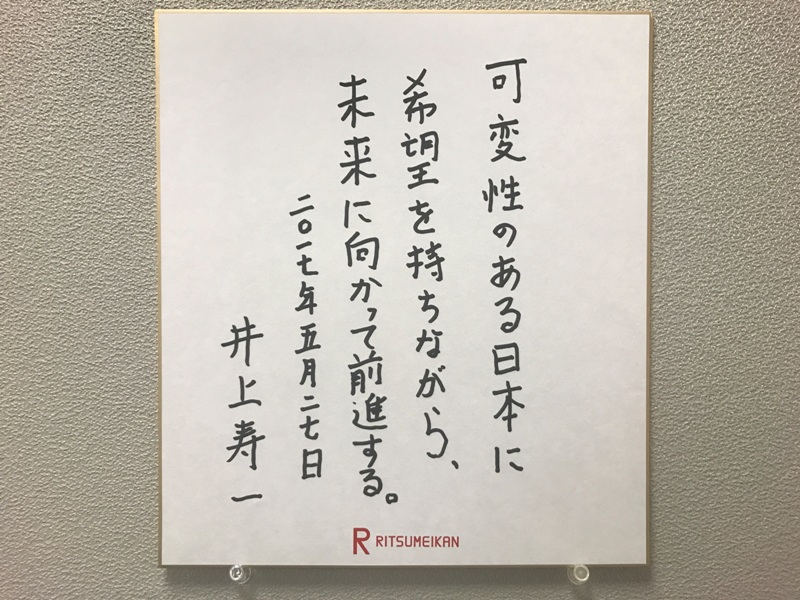 可変性のある日本に
希望を持ちながら、
未来に向かって前進する。
二〇一七年五月二七日
井上寿一
R RITSUMEIKAN